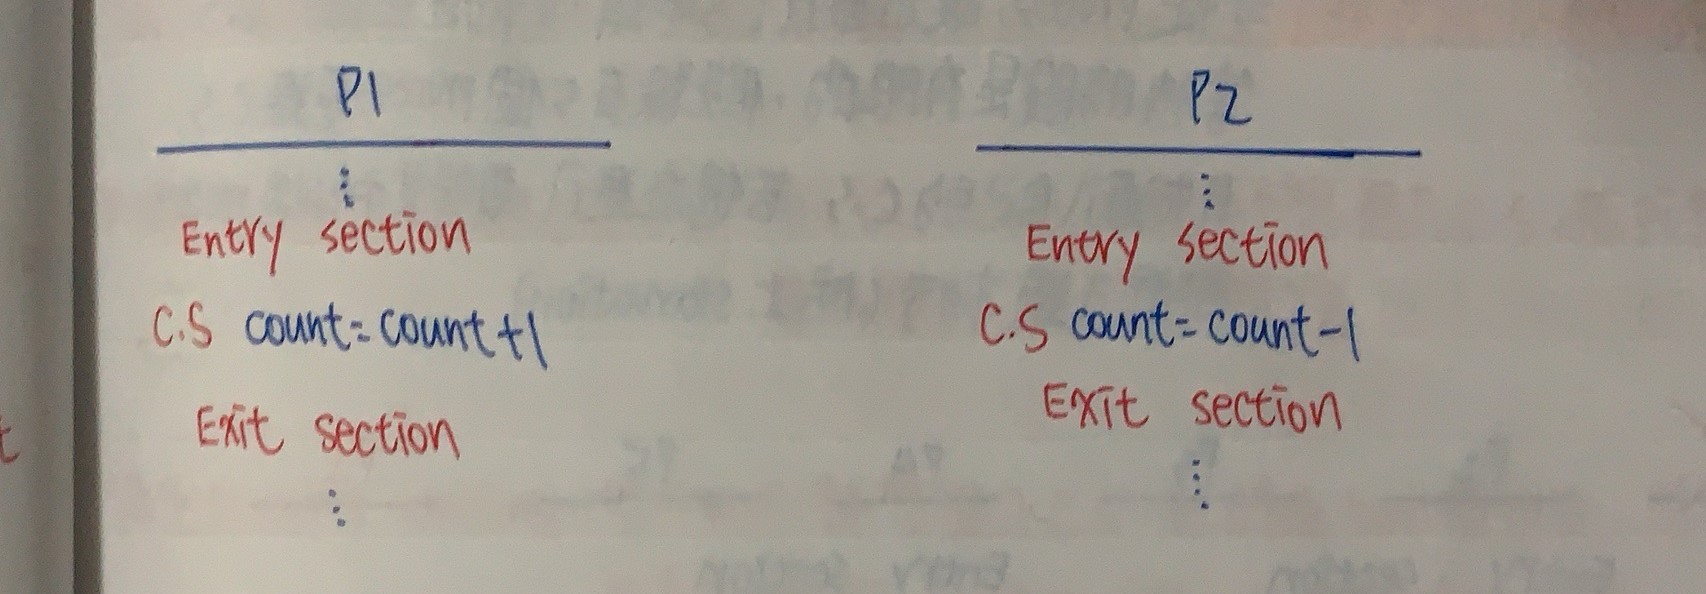 P1
⋮
Entry section
C.S count=count+1
Exit section
⋮
P2
⋮
Entry section
C.S count=count-1
Exit section
⋮